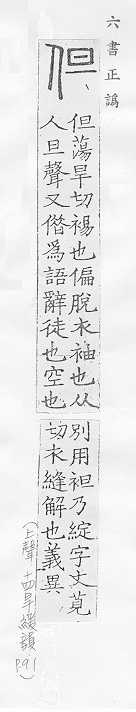 六書正譌
但
但蕩旱切裼也偏脫衣袖也从
人旦聲又僭為語辭徒也空也
別用袒乃綻字丈莧
切衣縫解也義異
(上聲 十四旱緩韻 P.91)